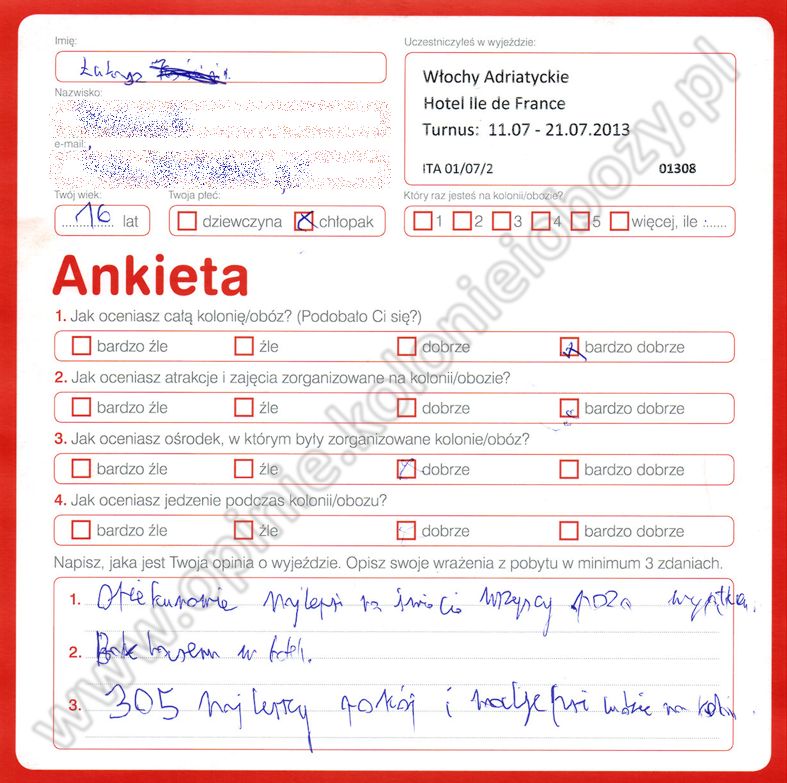 Imię:
Uczestniczyłeś w wyjeździe:
Włochy Adriatyckie
Hotel Ile de France
Turnus: 11.07 - 21.07.2013
ITA 01/07/2
01308
Nazwisko:
e-mail:
Twój wiek:
Twoja płeć:
Który raz jesteś na kolonii/obozie?
16 lat
dziewczyna
chłopak
1 2 3 4 5 więcej, ile :......
Ankieta
1. Jak oceniasz całą kolonię/obóz? (Podobało Ci się?)
bardzo źle źle dobrze bardzo dobrze
2. Jak oceniasz atrakcje i zajęcia zorganizowane na kolonii/obozie?
bardzo źle źle dobrze bardzo dobrze
3. Jak oceniasz ośrodek, w którym były zorganizowane kolonie/obóz?
bardzo źle źle dobrze bardzo dobrze
4. Jak oceniasz jedzenie podczas kolonii/obozu?
bardzo źle źle dobrze bardzo dobrze
Napisz, jaka jest Twoja opinia o wyjeździe. Opisz swoje wrażenia z pobytu w minimum 3 zdaniach.
1. Opiekunowie najlepsi na świecie wszyscy poza
2. w
3. 305 najlepszy pokój i ludzie na
www.opinie.kolonieiobozy.pl